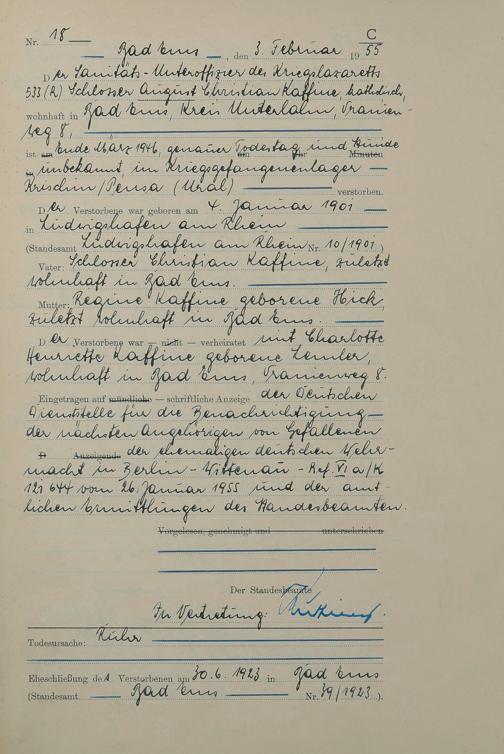 C
Nr. 18
Bad Ems, den 3. Februar 1955
Der Sanitäts-Unteroffizier des Kriegslazaretts
533 (R) Schlosser August Christian Kaffine, katholisch,
wohnhaft in Bad Ems, Kreis Unterlahn, Oranien-
weg 8,
ist am Ende März 1946, genauer Todestag und Stunde
um Uhr Minuten
in unbekannt im Kriegsgefangenenlager
Kreschim/Pensa (Ural) verstorben.
Der Verstorbene war geboren am 4. Januar 1901
in Ludwigshafen am Rhein
(Standesamt Ludwigshafen am Rhein Nr. 10/1901)
Vater: Schlosser Christian Kaffine, zuletzt
wohnhaft in Bad Ems.
Mutter: Regine Kaffine geborene Hick,
zuletzt wohnhaft in Bad Ems.
Der Verstorbene war — nicht — verheiratet mit Charlotte
Henriette Kaffine geborene Lemler,
wohnhaft in Bad Ems, Oranienweg 8.
Eingetragen auf mündliche — schriftliche Anzeige der Deutschen
Dienststelle für die Benachrichtigung
der nächsten Angehörigen von Gefallenen
D Anzeigende der ehemaligen deutschen Wehr-
macht in Berlin-Wittenau - Ref. VI a/K
121 644 vom 26. Januar 1955 und der amt-
lichen Ermittlungen des Standesbeamten.
Vorgelesen, genehmigt und unterschrieben
Der Standesbeamte
In Vertretung:
Todesursache: Ruhr
Eheschließung des Verstorbenen am 30.6.1923 in Bad Ems
(Standesamt Bad Ems Nr. 39/1923).